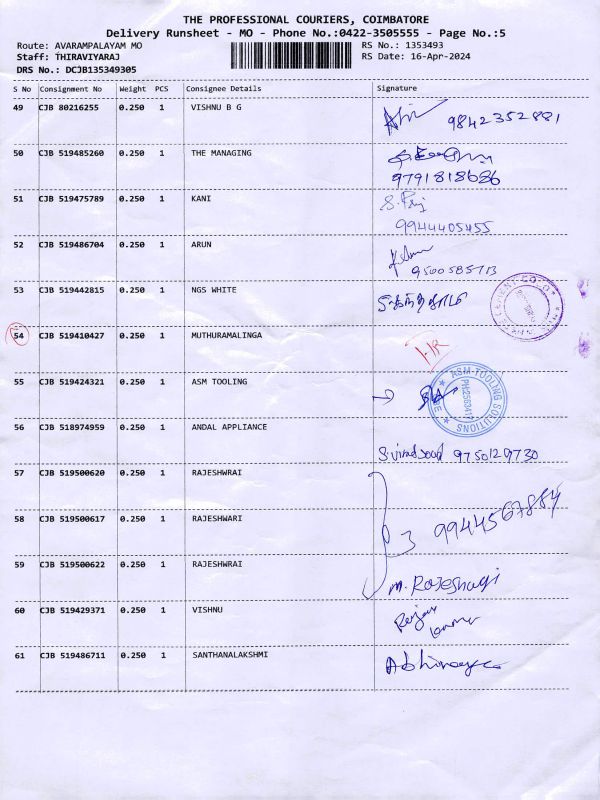 THE PROFESSIONAL COURIERS, COIMBATORE
Delivery Runsheet - MO - Phone No.:0422-3505555 - Page No.:5
Route: AVARAMPALAYAM MO RS No.: 1353493
Staff: THIRAVIYARAJ RS Date: 16-Apr-2024
DRS No.: DCJB135349305
S No Consignment No Weight PCS Consignee Details Signature
49 CJB 80216255 0.250 1 VISHNU B G 9842352881
50 CJB 519485260 0.250 1 THE MANAGING
9791818686
51 CJB 519475789 0.250 1 KANI
9944405455
52 CJB 519486704 0.250 1 ARUN
9500585713
53 CJB 519442815 0.250 1 NGS WHITE
54 CJB 519410427 0.250 1 MUTHURAMALINGA
55 CJB 519424321 0.250 1 ASM TOOLING
ASM-TOOLING SOLUTIONS
PH:2563417
56 CJB 518974959 0.250 1 ANDAL APPLIANCE
9750129730
57 CJB 519500620 0.250 1 RAJESHWRAI
58 CJB 519500617 0.250 1 RAJESHWARI 3 9944567884
59 CJB 519500622 0.250 1 RAJESHWRAI
M. Rajeshwari
60 CJB 519429371 0.250 1 VISHNU
61 CJB 519486711 0.250 1 SANTHANALAKSHMI Abhinaya